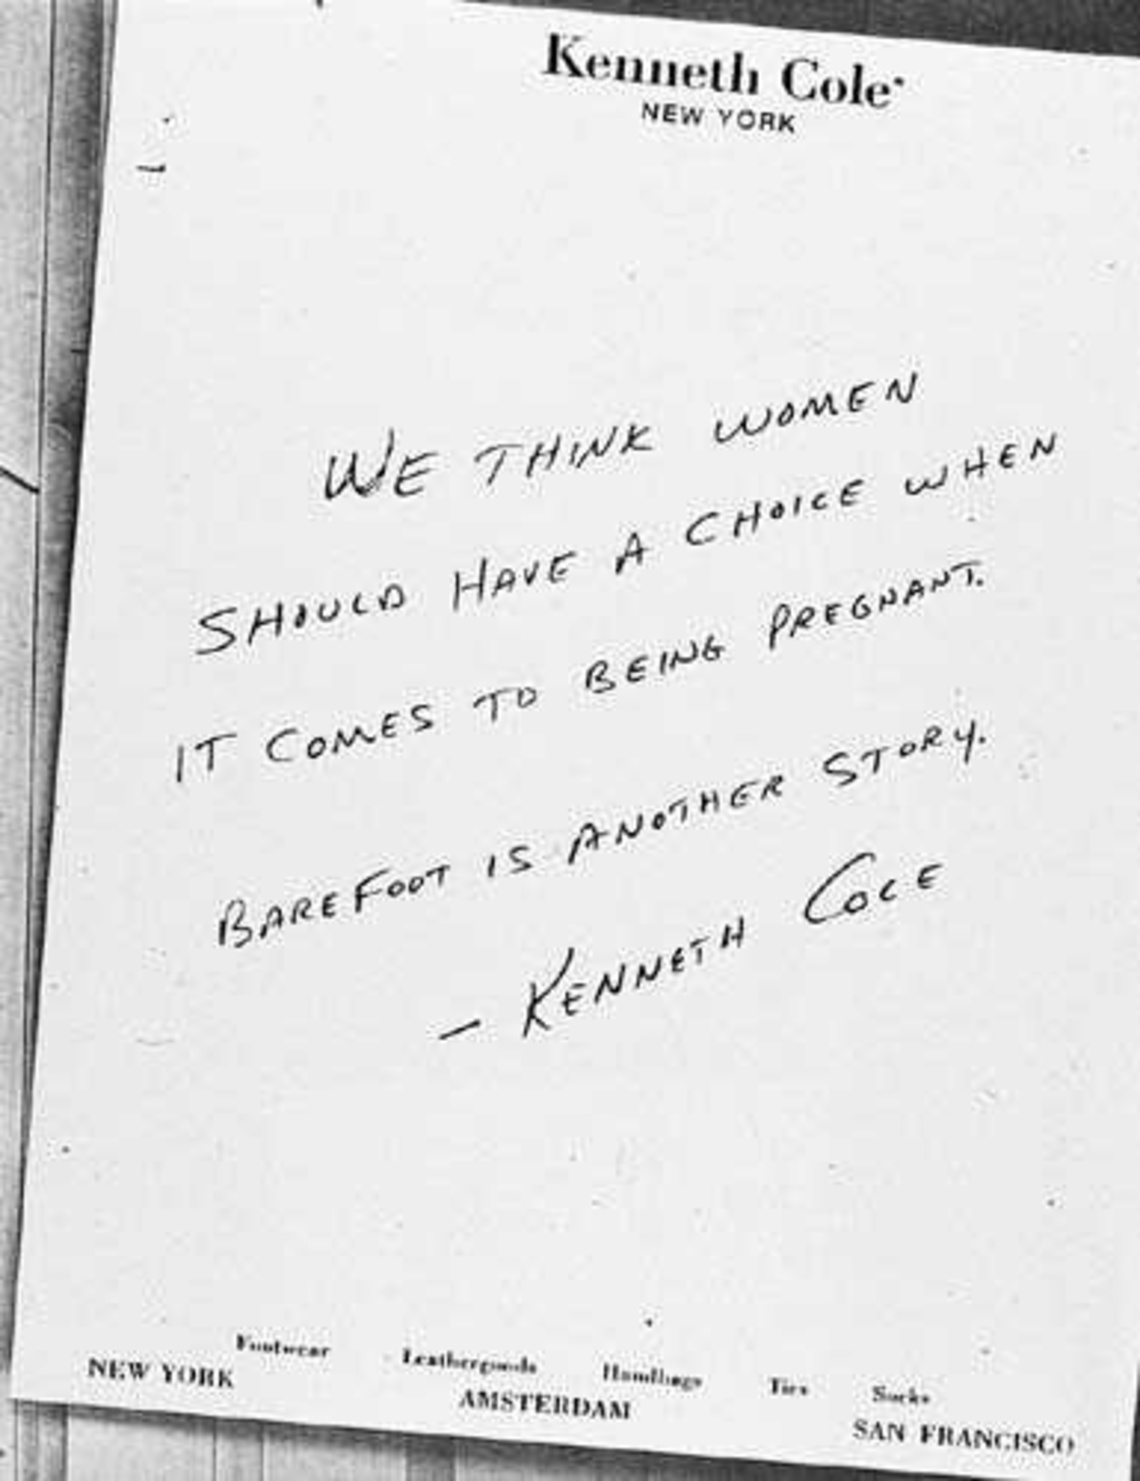 Kenneth Cole
NEW YORK
WE THINK WOMEN
SHOULD HAVE A CHOICE WHEN
IT COMES TO BEING PREGNANT.
BAREFOOT IS ANOTHER STORY.
— KENNETH COLE
Footwear Leathergoods Handbags Ties Socks
NEW YORK AMSTERDAM SAN FRANCISCO